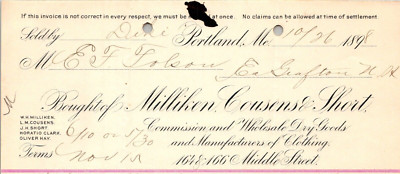 If this invoice is not correct in every respect, we must be notified at once. No claims can be allowed at time of settlement
Sold by Portland, Me 10/26 1898
M E F Folsom
E Grafton N H
Bought of Milliken, Cousens & Short,
W.H. MILLIKEN.
L.M. COUSENS.
J.H. SHORT.
HORATIO CLARK.
OLIVER HAY.
Commission and Wholesale Dry Goods
and Manufacturers of Clothing.
6/10 or 5/30
Terms Nov 15
164 & 166 Middle Street.